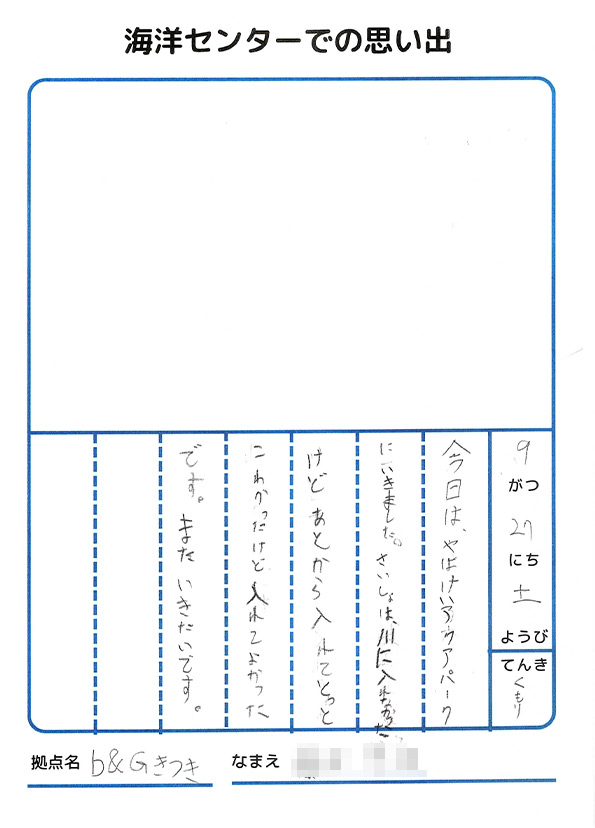 海洋センターでの思い出
9
がつ
27
にち
土
ようび
てんき
くもり
今日は、やばけいアクアパーク
にいきました。さいしょは、川に入れなかった
けどあとから入れてもっと
こわかったけど入れてよかった
です。またいきたいです。
拠点名 b&Gきつき
なまえ